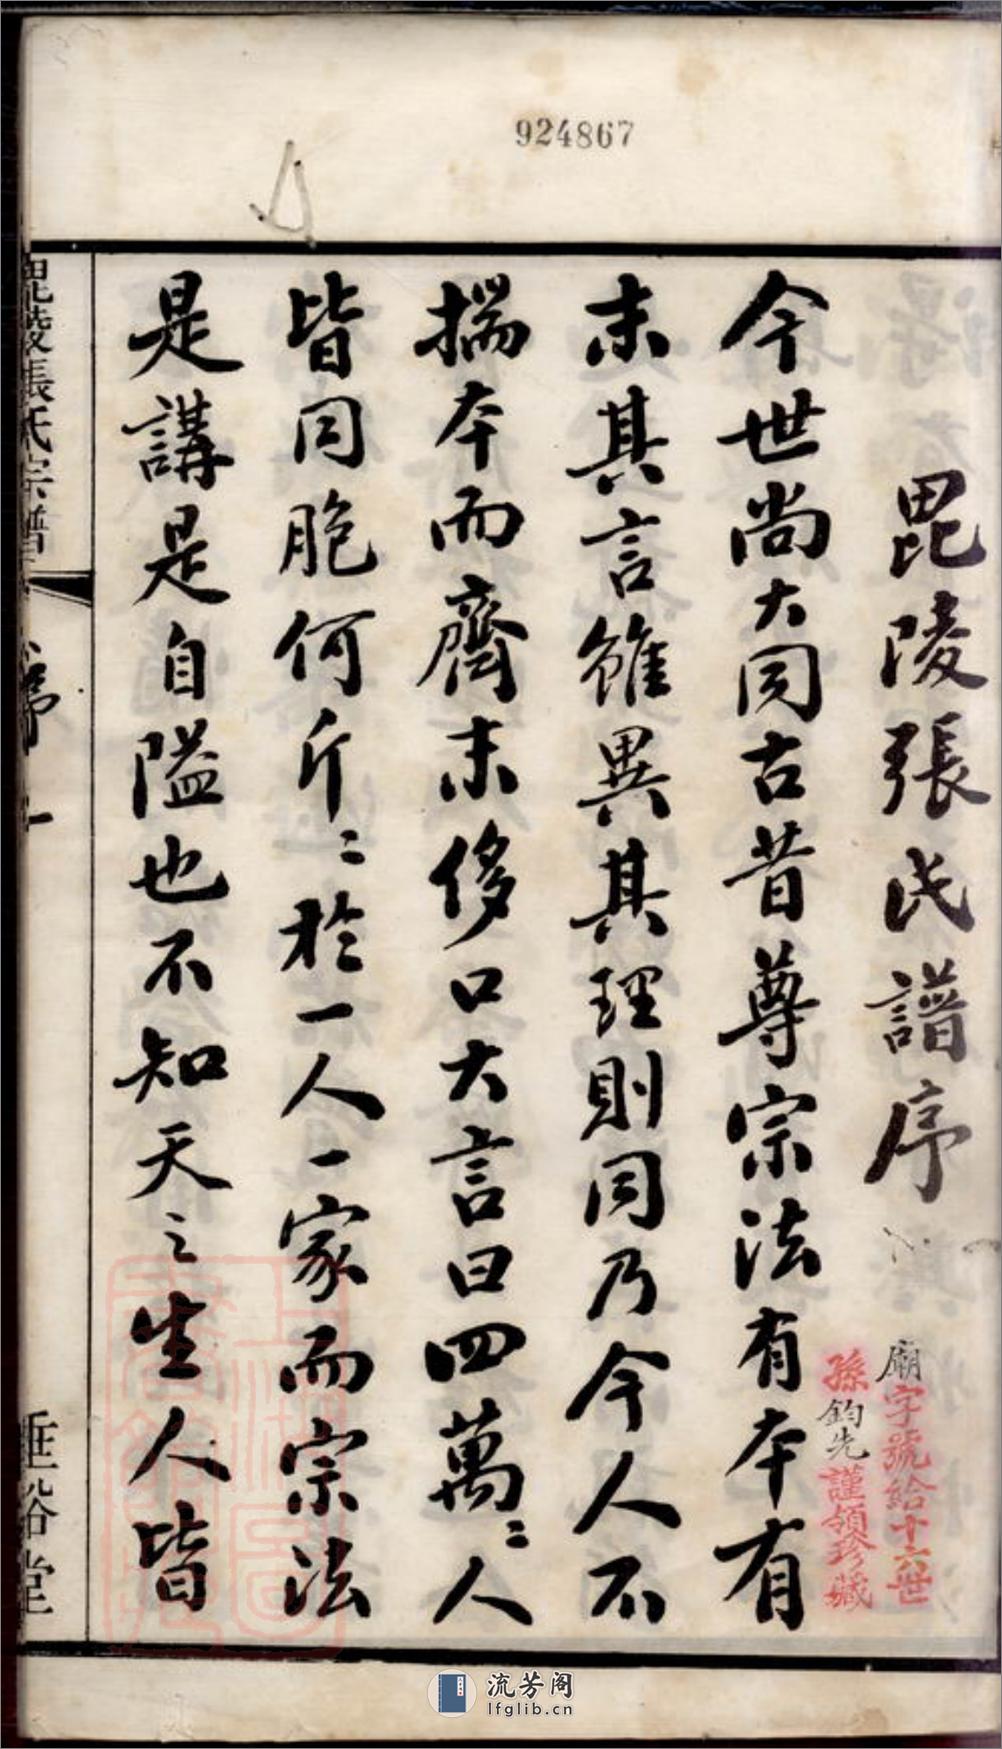 924867
毘陵張氏譜序
廟字號給十六世
孫鈞先謹領珍藏
今世尚大同古昔尊宗法有本有
末其言雖異其理則同乃今人不
揣本而齊末侈口大言曰四萬〻人
皆同胞何斤〻於一人一家而宗法
是講是自隘也不知天之生人皆
毘陵張氏宗譜
序
一
垂裕堂
流芳阁
lfglib.cn